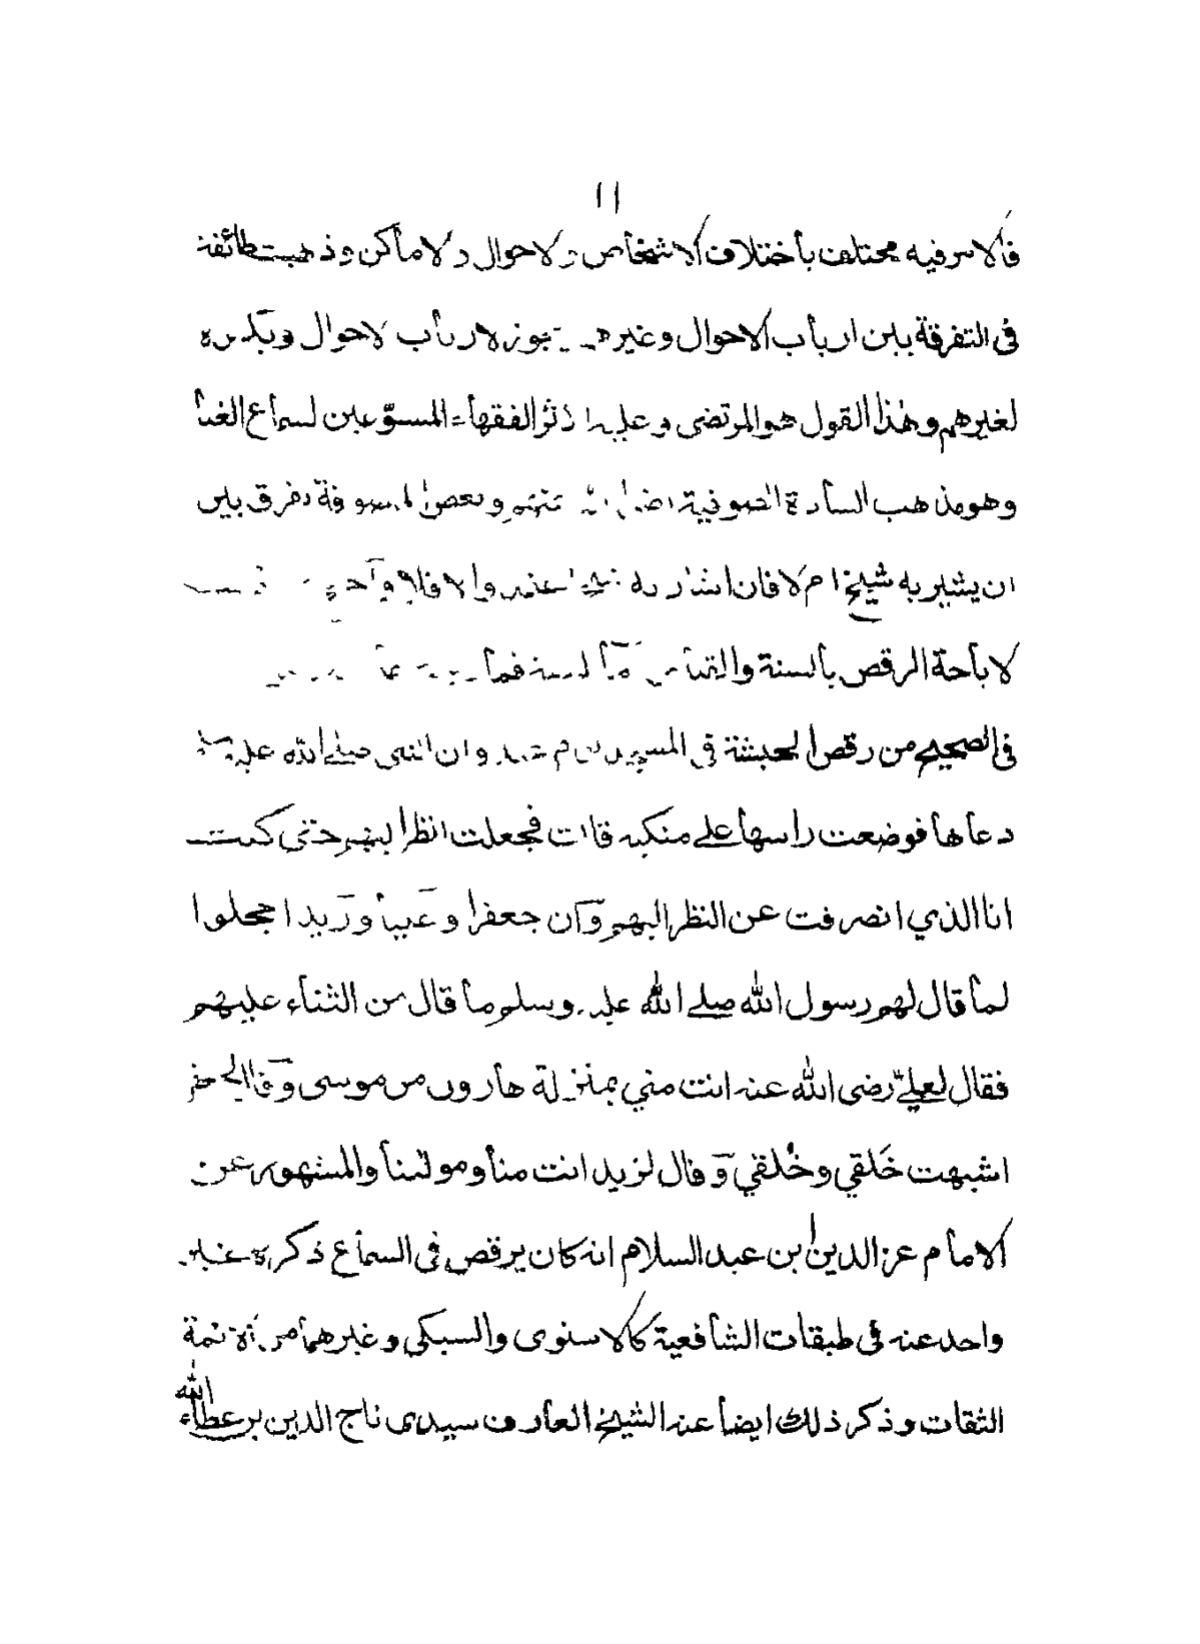 ١١
فالامر فيه مختلف باختلاف الاشخاص والاحوال والاماكن وذهبت طائفة
فى التفرقة بين ارباب الاحوال وغيرهم فيجوز لارباب الاحوال ويكره
لغيرهم وهذا القول هو المرتضى وعليه اكثر الفقهاء المسوّغين لسماع الغنا
وهو مذهب السادة الصوفية وبعض المتصوفة يفرق بين
ان يشير به شيخ ام لا فان اشار به والا فلا
لاباحة الرقص بالسنة والقياس اما السنة فما
فى الصحيح من رقص الحبشة فى المسجد وان النبى صلى الله عليه
دعاها فوضعت راسها على منكبه قالت فجعلت انظر اليهم حتى كنت
انا الذي انصرفت عن النظر اليهم وان جعفرا وعليا وزيدا حجلوا
لما قال لهم رسول الله صلى الله عليه وسلم ما قال من الثناء عليهم
فقال لعليّ رضى الله عنه انت مني بمنزلة هارون من موسى وقال لجعفر
اشبهت خَلقي وخُلقي وقال لزيد انت منا ومولٰنا والمشهور عن
الامام عز الدين ابن عبد السلام انه كان يرقص فى السماع ذكره غير
واحد عنه فى طبقات الشافعية كالاسنوى والسبكى وغيرهما من الائمة
الثقات وذكر ذلك ايضا عنه الشيخ العارف سيدى تاج الدين بن عطاء الله